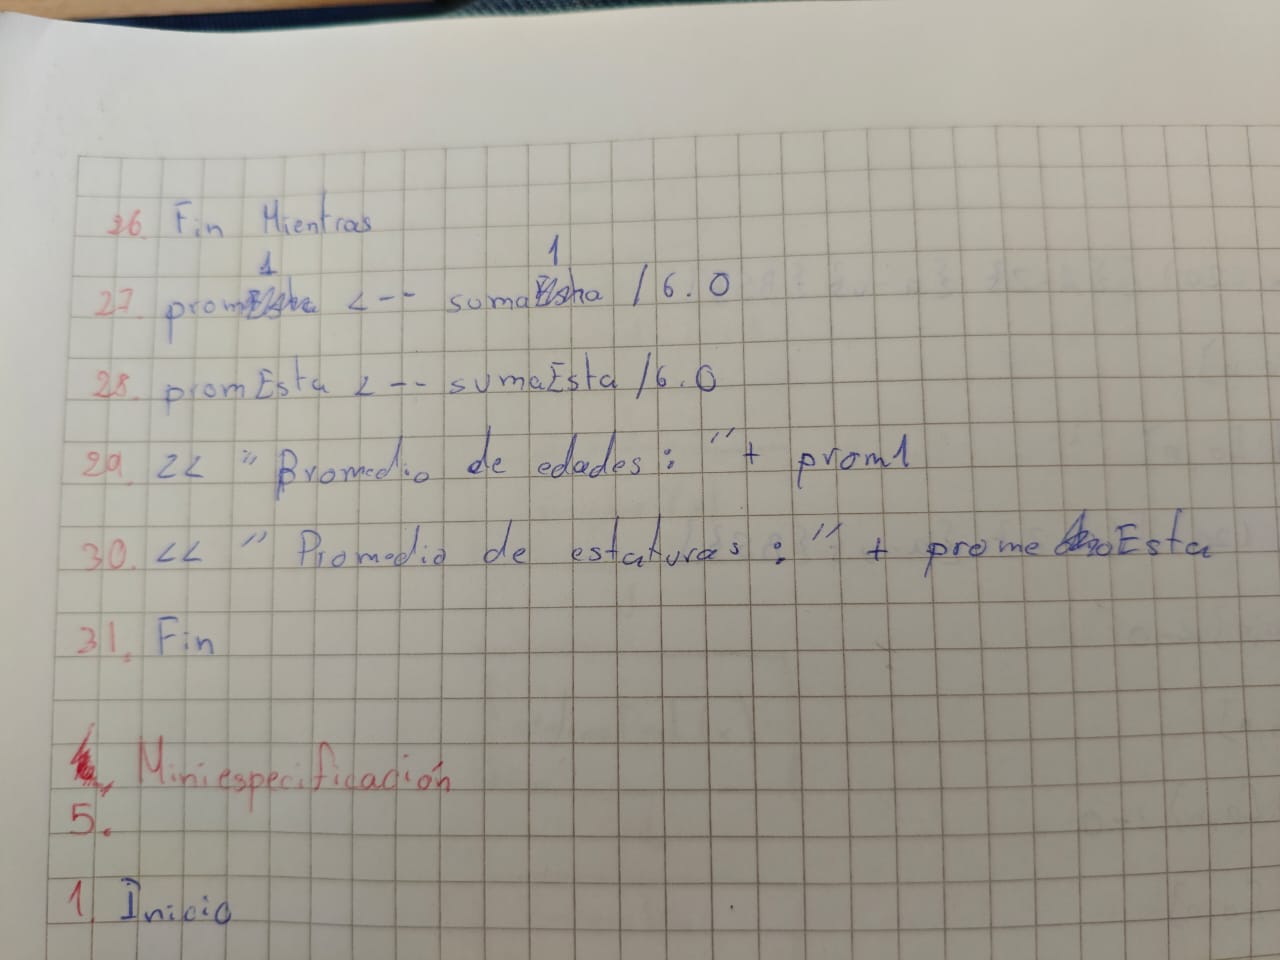 26. Fin Mientras
27. prom1 <-- suma1 / 6.0
28. promEsta <-- sumaEsta / 6.0
29. << "Promedio de edades: " + prom1
30. << " Promedio de estaturas : " + prome Esta
31. Fin
Miniespecificación
5.
1 Inicio